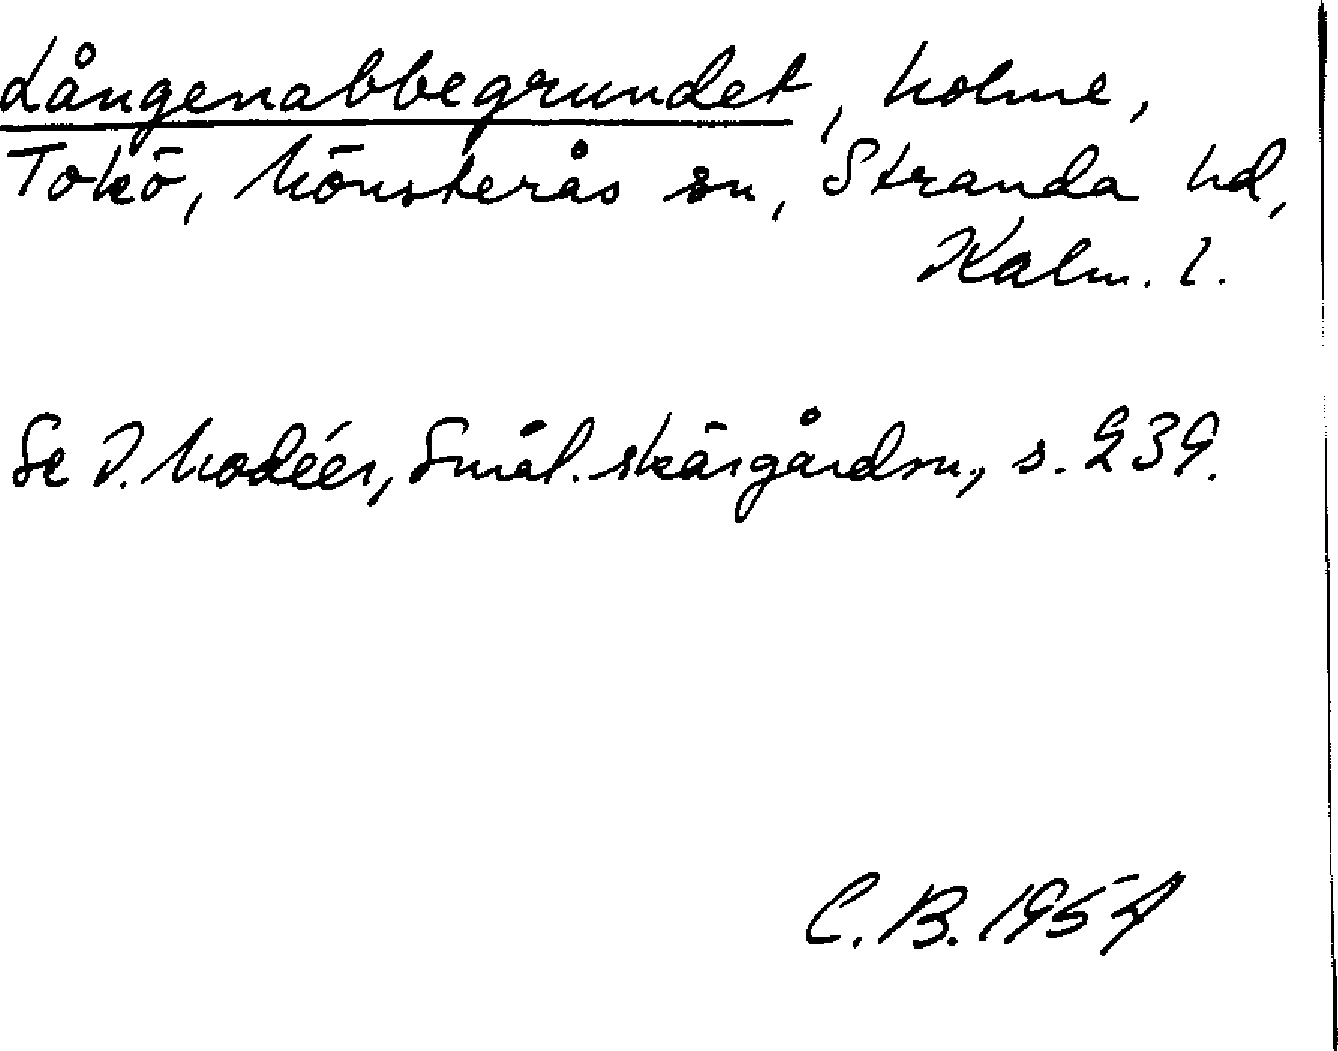 Långenabbegrundet, holme,
Tokö, Mönsterås sn, Stranda hd,
Kalm. l.
Se I. Modéer, Smål. skärgårdsn., s. 239.
C.B. 1957